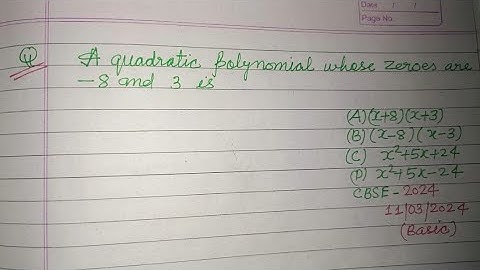 Date / /
Page No.
Q A quadratic polynomial whose zeroes are
-8 and 3 is
(A) (x+8)(x+3)
(B) (x-8)(x-3)
(C) x²+5x+24
(D) x²+5x-24
CBSE-2024
11/03/2024
(Basic)